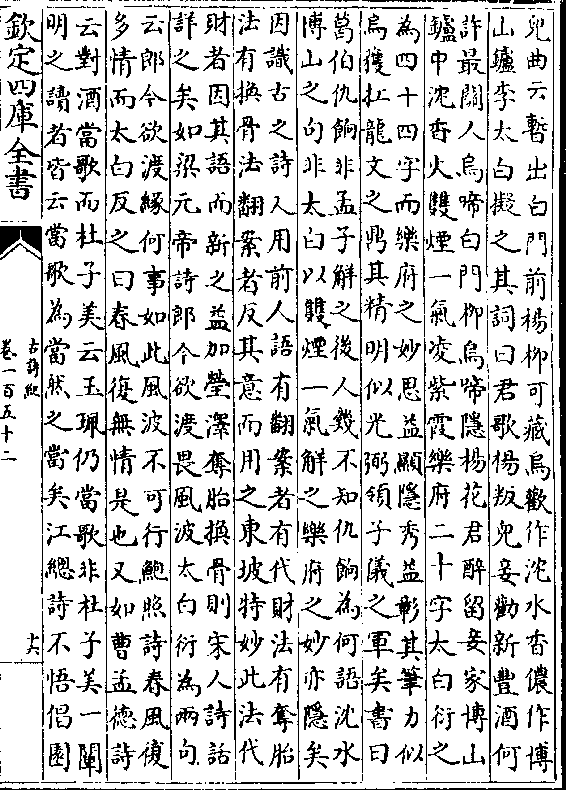 兒曲云暫出白門前楊柳可藏烏歡作沈水香儂作博
山鑪李太白擬之其詞曰君歌楊叛兒妾勸新豐酒何
許最關人烏啼白門柳烏啼隱楊花君醉留妾家博山
鑪中沈香火雙煙一氣凌紫霞樂府二十字太白衍之
為四十四字而樂府之妙思益顯隱秀益彰其筆力似
烏獲扛龍文之鼎其精明似光弼領子儀之軍矣書曰
葛伯仇餉非孟子解之後人幾不知仇餉為何語沈水
博山之句非太白以雙煙一氣解之樂府之妙亦隱矣
因識古之詩人用前人語有翻案者有代財法有奪胎
法有換骨法翻案者反其意而用之東坡特妙此法代
財者因其語而新之益加瑩澤奪胎換骨則宋人詩話
詳之矣如梁元帝詩郎今欲渡畏風波太白衍為兩句
云郎今欲渡緣何事如此風波不可行鮑照詩春風復
多情而太白反之曰春風復無情是也又如曹孟德詩
云對酒當歌而杜子美云玉珮仍當歌非杜子美一闡
明之讀者皆云當歌為當然之當矣江總詩不悟倡園
欽定四庫全書
古詩紀
卷一百五十二
十六